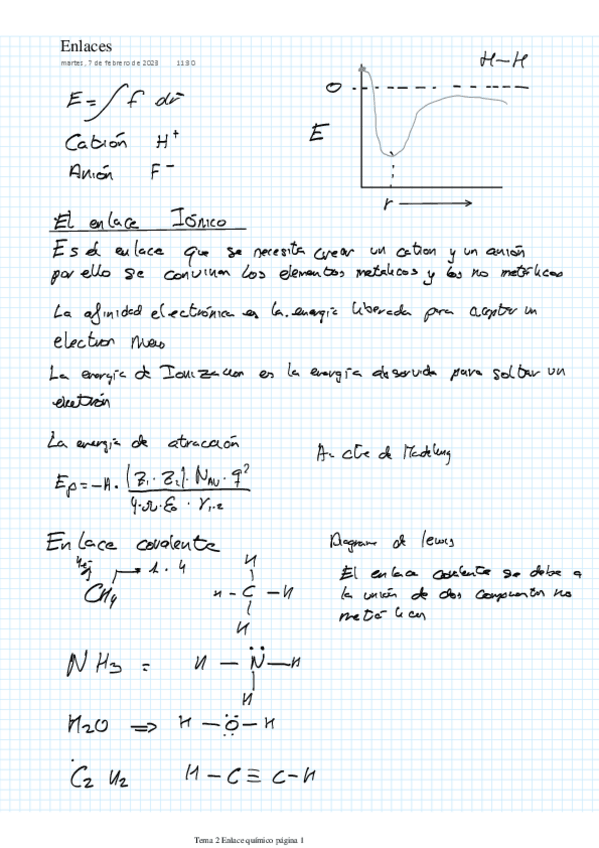 Enlaces
martes, 7 de febrero de 2023 11:30
H-H
E = ∫ f dr
O
Catión H⁺
E
Anión F⁻
r
El enlace Iónico
Es el enlace que se necesita crear un cation y un anión
por ello se convinan los elementos metalicos y los no metálicos
La afinidad electrónica es la energía liberada para aceptar un
electron
La energía de Ionizacion es la energía para soltar un
electrón
La energía de atracción
A- cte de Madelung
Ep = -A · (Z₁ · Z₂) · N_AV · q² / 4·π·ε₀ · r₁₋₂
Enlace covalente
Diagrama de lewis
4e⁻
1 · 4
CH4
H
H - C - H
H
El enlace covalente se debe a
la unión de dos no
metálicos
NH3 = H - N - H
H
H2O ⇒ H - O - H
C2 H2 H - C ≡ C - H
Tema 2 Enlace químico página 1